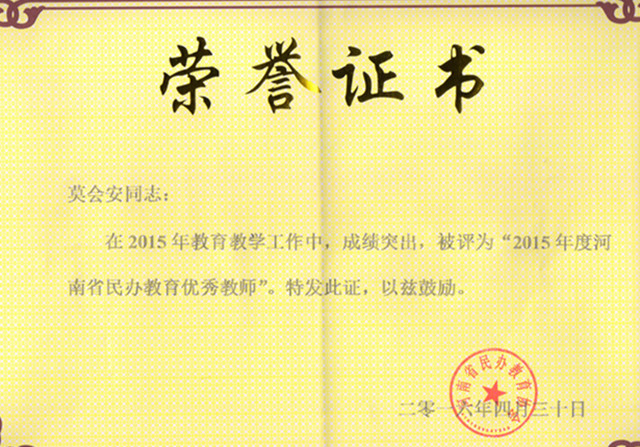 荣誉证书
莫会安同志：
在2015年教育教学工作中，成绩突出，被评为“2015年度河
南省民办教育优秀教师”。特发此证，以兹鼓励。
河南省民办教育协会
二零一六年四月三十日